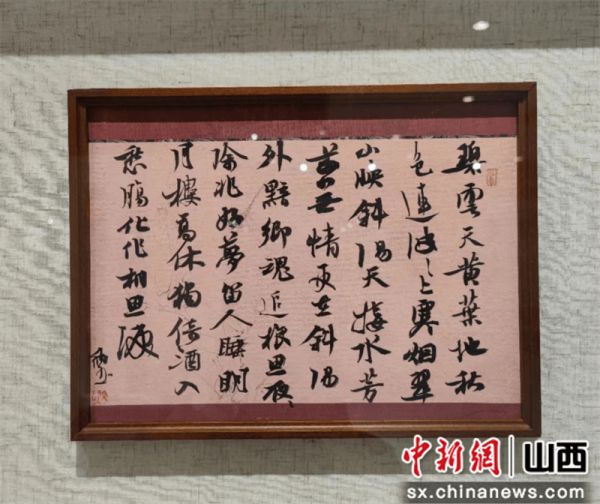 碧雲天黄葉地秋
色連波々上寒烟翠
山映斜陽天接水芳
草无情更在斜陽
外黯鄉魂追旅思夜
除非好夢留人睡明
月樓高休獨倚酒入
愁腸化作相思淚
中新網 山西
sx.chinanews.com